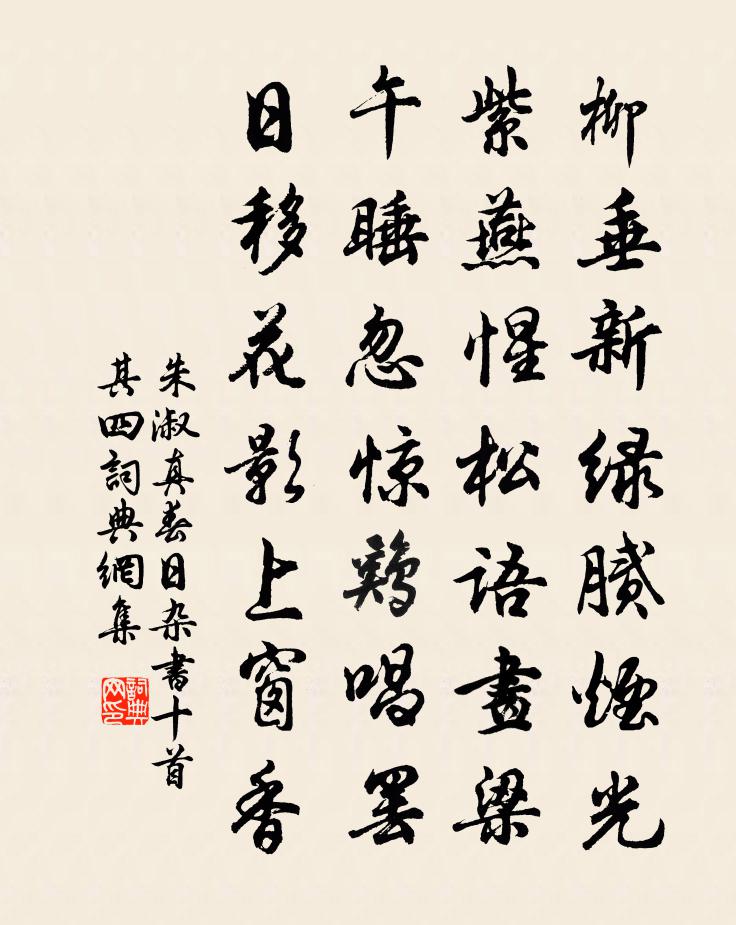 柳垂新绿腻烟光
紫燕惺松語畫梁
午睡忽惊鷄唱罢
日移花影上窗香
朱淑真春日杂書十首
其四詞典網集
詞典网印